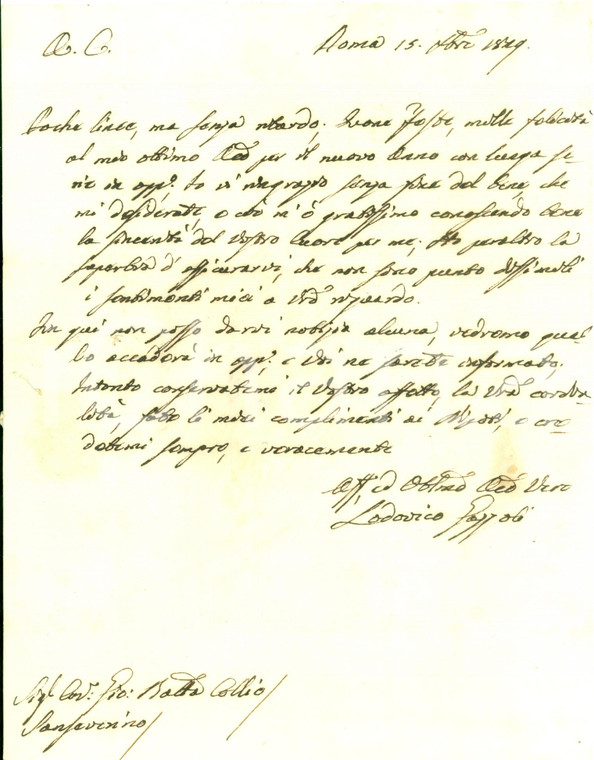 A. C.
Roma 15. Xbre 1829.
Poche linee, ma senza ritardo. Buone Feste, mille felicità
al mio ottimo per il nuovo Anno con lunga se-
rie in app.º Io vi ringrazio senza fine del bene, che
mi desiderate, e ciò m'è gratissimo conoscendo bene
la sincerità del vostro Cuore per me; Ho peraltro la
superbia d'assicurarvi, che non sono punto dissimili
i sentimenti miei a riguardo.
Fin qui non posso darvi notizia alcuna, vedremo quel-
lo accaderà in app.º, e Voi ne sarete informato.
Intanto conservatemi il Vostro affetto, la Vrã cordia-
lità, fate li miei complimenti ai Nipoti, e cre-
detemi sempre, e veracemente
Aff. ed Vero
Lodovico Gazzoli
Sig.r Gio: Batta Collio
Sanseverino